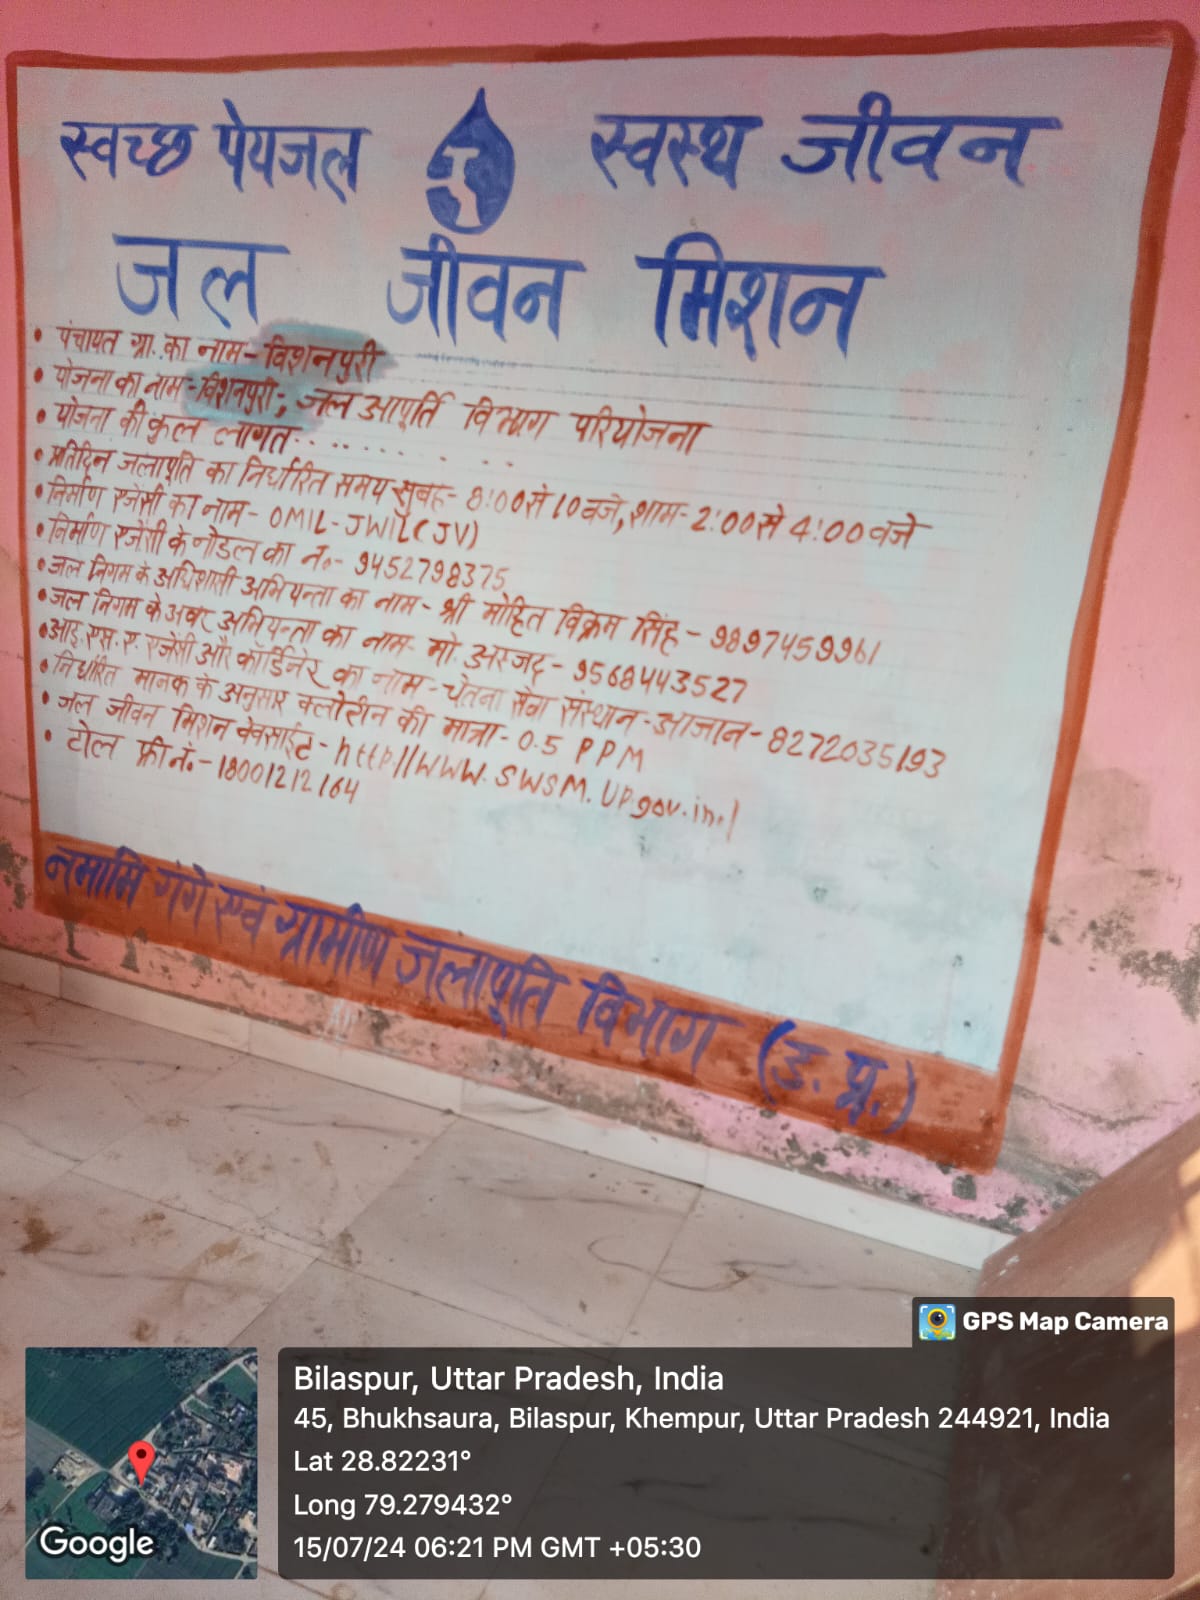 स्वच्छ पेयजल स्वस्थ जीवन
जल जीवन मिशन
• पंचायत ग्रा. का नाम - विशनपुरी
• योजना का नाम - विशनपुरी; जल आपूर्ति विभाग परियोजना
• योजना की कुल लागत.........
• प्रतिदिन जलापूर्ति का निर्धारित समय सुबह - 8:00 से 10 वजे, शाम - 2:00 से 4:00 वजे
• निर्माण एजेंसी का नाम - OMIL - JWIL (JV)
• निर्माण एजेंसी के नोडल का नं. - 9452798375
• जल निगम के अधिशासी अभियन्ता का नाम - श्री मोहित विक्रम सिंह - 9897459961
• जल निगम के अवर अभियन्ता का नाम - मो. अरजद - 9568443527
• आइ. एस. ए. एजेंसी और कॉर्डिनेर का नाम - चेतना सेवा संस्थान - आजान - 8272035193
• निर्धारित मानक के अनुसार क्लोरीन की मात्रा - 0.5 PPM
• जल जीवन मिशन वेवसाईट - http//WWW.SWSM.UP.gov.in./
• टोल फ्री नं. - 18001212164
नमामि गंगे एवं ग्रामीण जलापूर्ति विभाग (उ. प्र.)
GPS Map Camera
Bilaspur, Uttar Pradesh, India
45, Bhukhsaura, Bilaspur, Khempur, Uttar Pradesh 244921, India
Lat 28.82231°
Long 79.279432°
15/07/24 06:21 PM GMT +05:30
Google